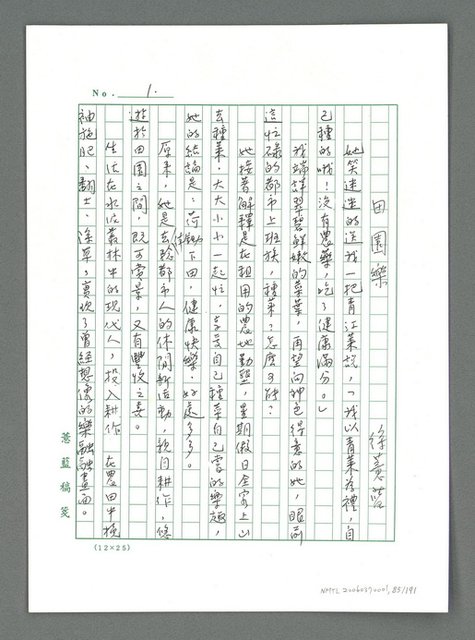 No. 1.
田園樂
徐薏藍
她笑迷迷的送我一把青江菜說,「我以青菜為禮,自
己種的哦!沒有農藥,吃了健康滿分。」
我端詳翠碧鮮嫩的菜葉,再望向神色得意的她,眼前
這忙碌的都市上班族,種菜?怎麼可能?
她接著解釋是在親朋的農地動墾,星期假日全家上山
去種菜,大大小小一起忙,享受自己種菜自己嘗的樂趣,
她的結論是:荷鋤下田,健康快樂,好處多多。
原來,她是去都市人的休閒新活動,親自耕作,悠
遊於田園之間,既可賞景,又有豐收之喜。
生活在水泥叢林中的現代人,投入耕作 在農田中換
袖施肥、翻土、除草,實現了曾經想像的樂融融畫面。
薏藍稿箋
(12×25)
NMTL 20060370001, 85/191